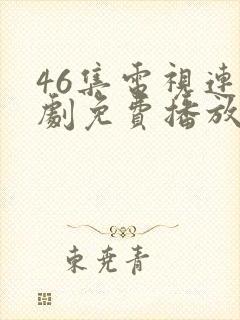 46集電視連
劇免費播放
東堯青